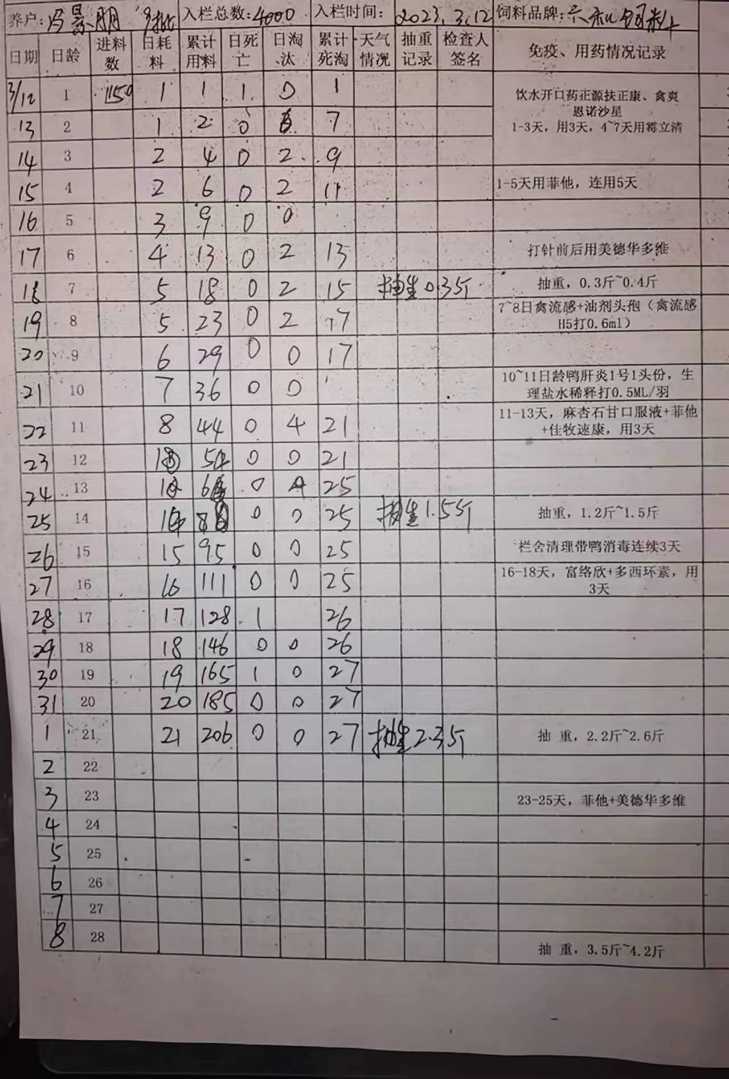 养户: 冷景朋 9批 入栏总数:4000 入栏时间: 2023.3.12 饲料品牌: 六和饲料
日期 日龄 进料数 日耗料 累计用料 日死亡 日淘汰 累计死淘 天气情况 抽重记录 检查人签名 免疫、用药情况记录
3/12 1 1150 1 1 1 0 1 饮水开口药正源扶正康、禽爽
恩诺沙星
13 2 1 2 0 6 7 1-3天，用3天，4~7天用霉立清
14 3 2 4 0 2 9
15 4 2 6 0 2 11 1-5天用菲他，连用5天
16 5 3 9 0 0
17 6 4 13 0 2 13 打针前后用美德华多维
18 7 5 18 0 2 15 抽重0.3斤 抽重，0.3斤~0.4斤
19 8 5 23 0 2 17 7~8日禽流感+油剂头孢（禽流感
H5打0.6ml）
20 9 6 29 0 0 17
21 10 7 36 0 0 10~11日龄鸭肝炎1号1头份，生
理盐水稀释打0.5ML/羽
22 11 8 44 0 4 21 11-13天，麻杏石甘口服液+菲他
+佳牧速康，用3天
23 12 0 0 21
24 13 0 4 25
25 14 0 0 25 抽重1.5斤 抽重，1.2斤~1.5斤
26 15 15 95 0 0 25 栏舍清理带鸭消毒连续3天
27 16 16 111 0 0 25 16-18天，富络欣+多西环素，用
3天
28 17 17 128 1 26
29 18 18 146 0 0 26
30 19 19 165 1 0 27
31 20 20 185 0 0 27
1 21 21 206 0 0 27 抽重2.3斤 抽 重，2.2斤~2.6斤
2 22
3 23 23-25天，菲他+美德华多维
4 24
5 25
6 26
7 27
8 28 抽 重，3.5斤~4.2斤